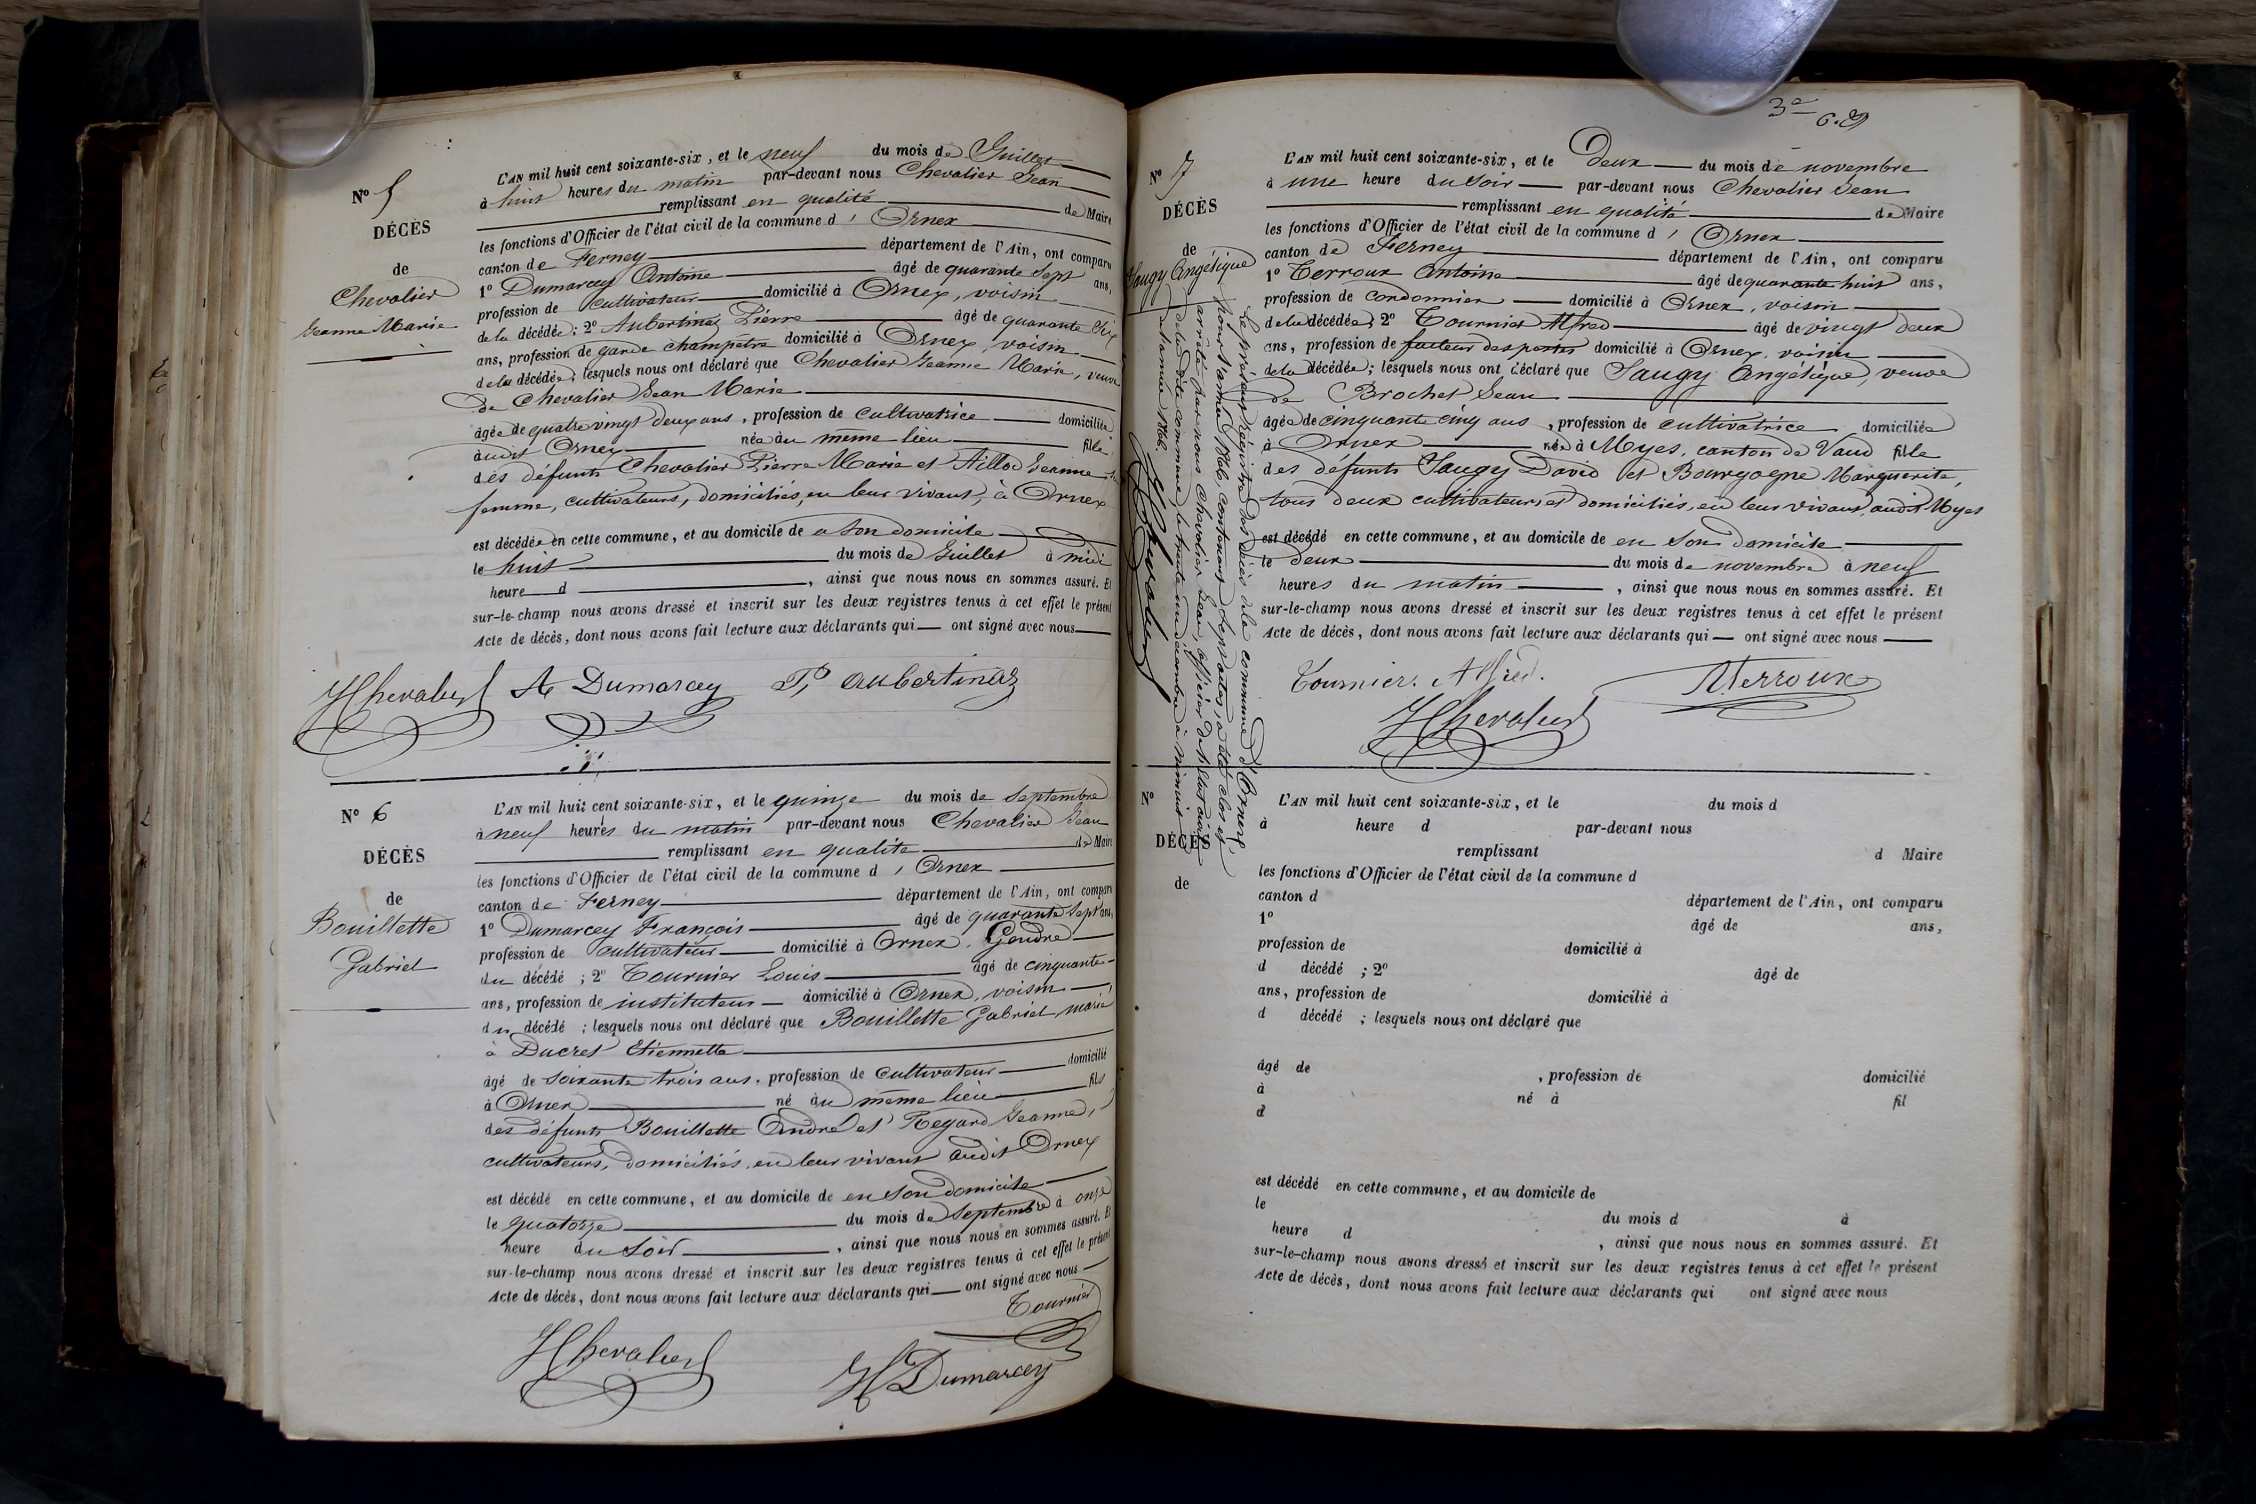 Nº 5
DÉCÈS
de
Chevalier
Jeanne Marie
L'AN mil huit cent soixante-six, et le neuf du mois de Juillet
à huit heures du matin par-devant nous Chevalier Jean
remplissant en qualité de Maire
les fonctions d'Officier de l'état civil de la commune d' Ornex
canton de Ferney département de l'Ain, ont comparu
1º Dumarcey Antoine âgé de quarante sept ans,
profession de cultivateur domicilié à Ornex, voisin
de la décédée; 2º Aubertinaz Pierre âgé de quarante six
ans, profession de garde champetre domicilié à Ornex, voisin
de la décédée; lesquels nous ont déclaré que Chevalier Jeanne Marie, veuve
de Chevalier Jean Marie
âgée de quatre vingt deux ans, profession de cultivatrice domiciliée
audit Ornex née au même lieu fille
des défunts Chevalier Pierre Marie et Jeanne
femme, cultivateurs, domiciliés, en leur vivant, à Ornex
est décédée en cette commune, et au domicile de a son domicile
le huit du mois de Juillet à midi
heure d , ainsi que nous nous en sommes assuré. Et
sur-le-champ nous avons dressé et inscrit sur les deux registres tenus à cet effet le présent
Acte de décès, dont nous avons fait lecture aux déclarants qui ont signé avec nous
JChevalier At Dumarcey P. aubertinaz
Nº 6
DÉCÈS
de
Bouillette
Gabriel
L'AN mil huit cent soixante-six, et le quinze du mois de Septembre
à neuf heures du matin par-devant nous Chevalier Jean
remplissant en qualité de Maire
les fonctions d'Officier de l'état civil de la commune d' Ornex
canton de Ferney département de l'Ain, ont comparu
1º Dumarcey François âgé de quarante sept ans,
profession de cultivateur domicilié à Ornex. Gendre
du décédé; 2º Tournier Louis âgé de cinquante
ans, profession de instituteur domicilié à Ornex, voisin
du décédé; lesquels nous ont déclaré que Bouillette Gabriel, marié
à Ducret Etiennette
âgé de soixante trois ans, profession de cultivateur domicilié
à Ornex né au même lieu fils
des défunts Bouillette André et Regard Jeanne,
cultivateurs, domiciliés, en leur vivant audit Ornex
est décédé en cette commune, et au domicile de en son domicile
le quatorze du mois de Septembre à onze
heure du soir , ainsi que nous nous en sommes assuré. Et
sur-le-champ nous avons dressé et inscrit sur les deux registres tenus à cet effet le présent
Acte de décès, dont nous avons fait lecture aux déclarants qui ont signé avec nous
Tournier
JChevalier
Dumarcey
Nº 7
DÉCÈS
de
Saugy Angélique
L'AN mil huit cent soixante-six, et le Deux du mois de novembre
à une heure du soir par-devant nous Chevalier Jean
remplissant en qualité de Maire
les fonctions d'Officier de l'état civil de la commune d' Ornex
canton de Ferney département de l'Ain, ont comparu
1º Terroux Antoine âgé de quarante huit ans,
profession de cordonnier domicilié à Ornex, voisin
de la décédée; 2º Tournier Alfred âgé de vingt deux
ans, profession de facteur des postes domicilié à Ornex, voisin
de la décédée; lesquels nous ont déclaré que Saugy Angélique, veuve
de Brochet Jean
âgée de cinquante cinq ans, profession de cultivatrice domiciliée
à Ornex née à Myes, canton de Vaud fille
des défunts Saugy David et Bourgogne Marguerite,
tous deux cultivateurs et domiciliés, en leur vivant, audit Myes
est décédé en cette commune, et au domicile de en son domicile
le deux du mois de novembre à neuf
heures du matin , ainsi que nous nous en sommes assuré. Et
sur-le-champ nous avons dressé et inscrit sur les deux registres tenus à cet effet le présent
Acte de décès, dont nous avons fait lecture aux déclarants qui ont signé avec nous
Tournier. Alfred. Aterroux
JChevalier
Le présent régistre des décès de la commune d'Ornex,
pour l'année 1866, contenant sept actes, a été clos et
arrêté par nous Chevalier Jean, officier de l'état civil
de la dite commune, le trente un décembre à minuit
de l'année 1866.
JChevalier
Nº
DÉCÈS
de
L'AN mil huit cent soixante-six, et le du mois d
à heure d par-devant nous
remplissant d Maire
les fonctions d'Officier de l'état civil de la commune d
canton d département de l'Ain, ont comparu
1º âgé de ans,
profession de domicilié à
d décédé ; 2º âgé de
ans, profession de domicilié à
d décédé ; lesquels nous ont déclaré que
âgé de , profession de domicilié
à né à fil
d
est décédé en cette commune, et au domicile de
le du mois d à
heure d , ainsi que nous nous en sommes assuré. Et
sur-le-champ nous avons dressé et inscrit sur les deux registres tenus à cet effet le présent
Acte de décès, dont nous avons fait lecture aux déclarants qui ont signé avec nous